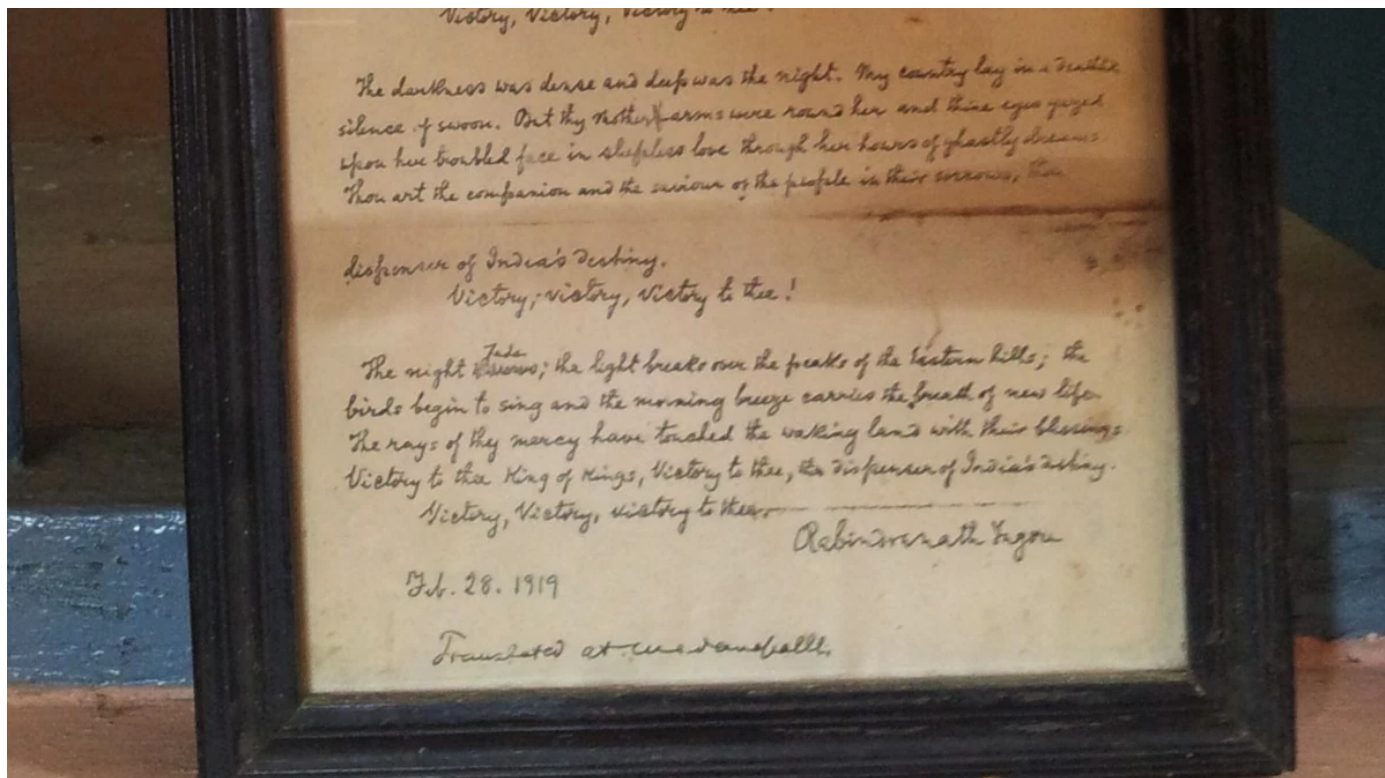 Victory, Victory, Victory to thee!
The darkness was dense and deep was the night. My country lay in a deathlike
silence of swoon. But thy mother arms were round her and thine eyes gazed
upon her troubled face in sleepless love through her hours of ghastly dreams.
Thou art the companion and the saviour of the people in their sorrows, thou
dispenser of India's destiny.
Victory, victory, victory to thee!
fades
The night ; the light breaks over the peaks of the Eastern hills; the
birds begin to sing and the morning breeze carries the breath of new life.
The rays of thy mercy have touched the waking land with their blessings.
Victory to thee King of Kings, Victory to thee, the dispenser of India's destiny.
Victory, Victory, victory to thee.
Rabindranath Tagore
Feb. 28. 1919
Translated at Madanapalle